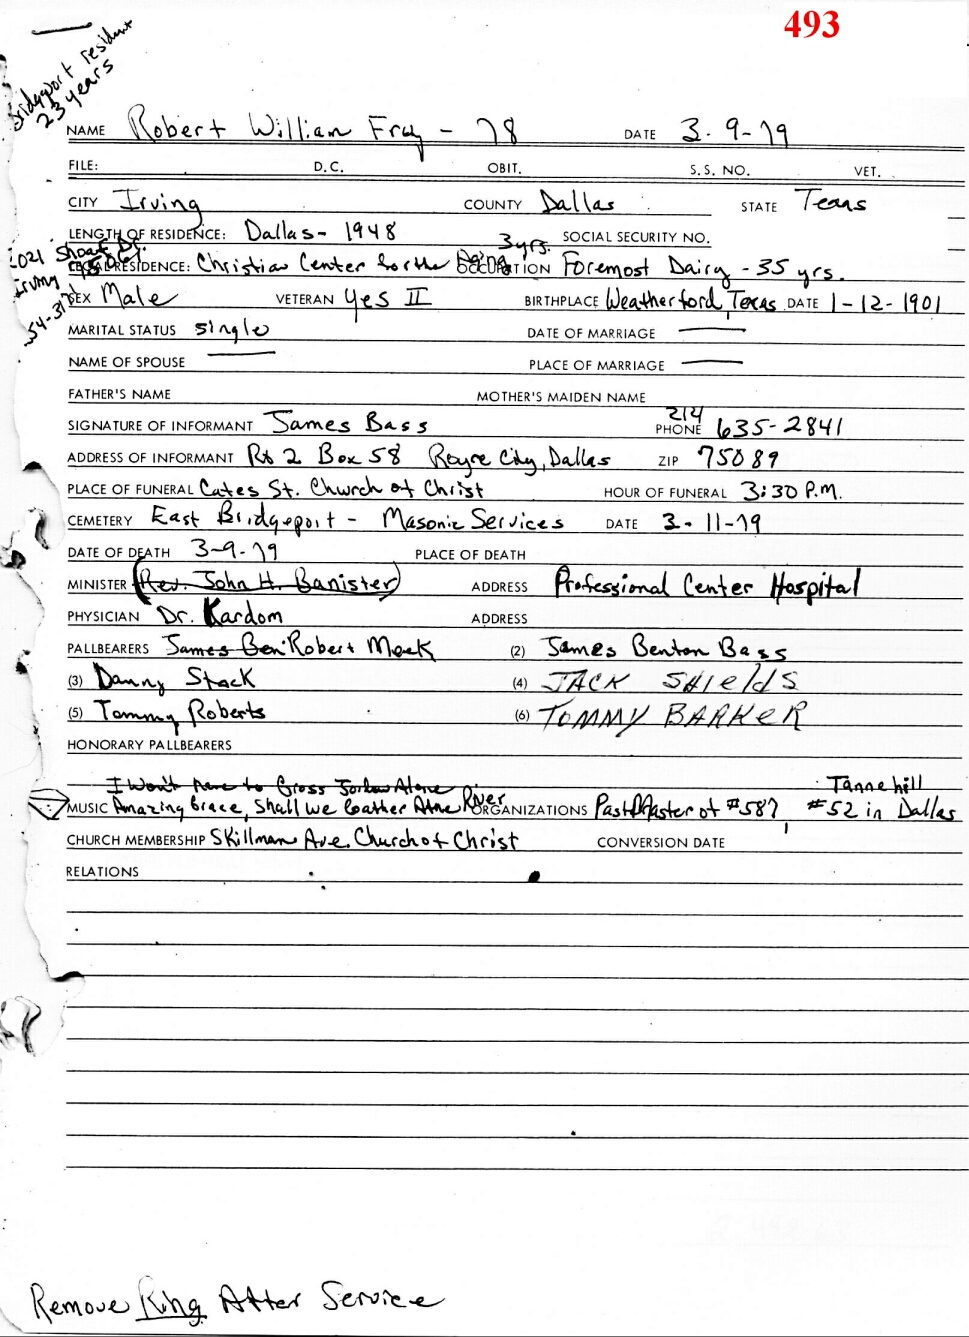 493
Bridgeport resident
23 years
NAME Robert William Fray - 78 DATE 3-9-79
FILE: D.C. OBIT. S.S. NO. VET.
CITY Irving COUNTY Dallas STATE Texas
LENGTH OF RESIDENCE: Dallas - 1948 3 yrs. SOCIAL SECURITY NO.
Shoaf Dr.
Irving 75061
LEGAL RESIDENCE: Christian Center for the Aging OCCUPATION Foremost Dairy - 35 yrs.
SEX Male VETERAN Yes II BIRTHPLACE Weatherford, Texas DATE 1-12-1901
MARITAL STATUS single DATE OF MARRIAGE —
NAME OF SPOUSE — PLACE OF MARRIAGE —
FATHER'S NAME MOTHER'S MAIDEN NAME
SIGNATURE OF INFORMANT James Bass PHONE 214 635-2841
ADDRESS OF INFORMANT Rt 2 Box 58 Royce City, Dallas ZIP 75089
PLACE OF FUNERAL Cates St. Church of Christ HOUR OF FUNERAL 3:30 P.M.
CEMETERY East Bridgeport - Masonic Services DATE 3-11-79
DATE OF DEATH 3-9-79 PLACE OF DEATH
MINISTER (Rev. John H. Banister) ADDRESS Professional Center Hospital
PHYSICIAN Dr. Kardom ADDRESS
PALLBEARERS James Ben Robert Meek (2) James Benton Bass
(3) Danny Stack (4) JACK SHIELDS
(5) Tommy Roberts (6) TOMMY BARKER
HONORARY PALLBEARERS
I Won't have to Cross Jordan Alone Tannehill
MUSIC Amazing Grace, Shall We Gather At the River ORGANIZATIONS Past Master of #587, #52 in Dallas
CHURCH MEMBERSHIP Skillman Ave. Church of Christ CONVERSION DATE
RELATIONS
Remove Ring After Service